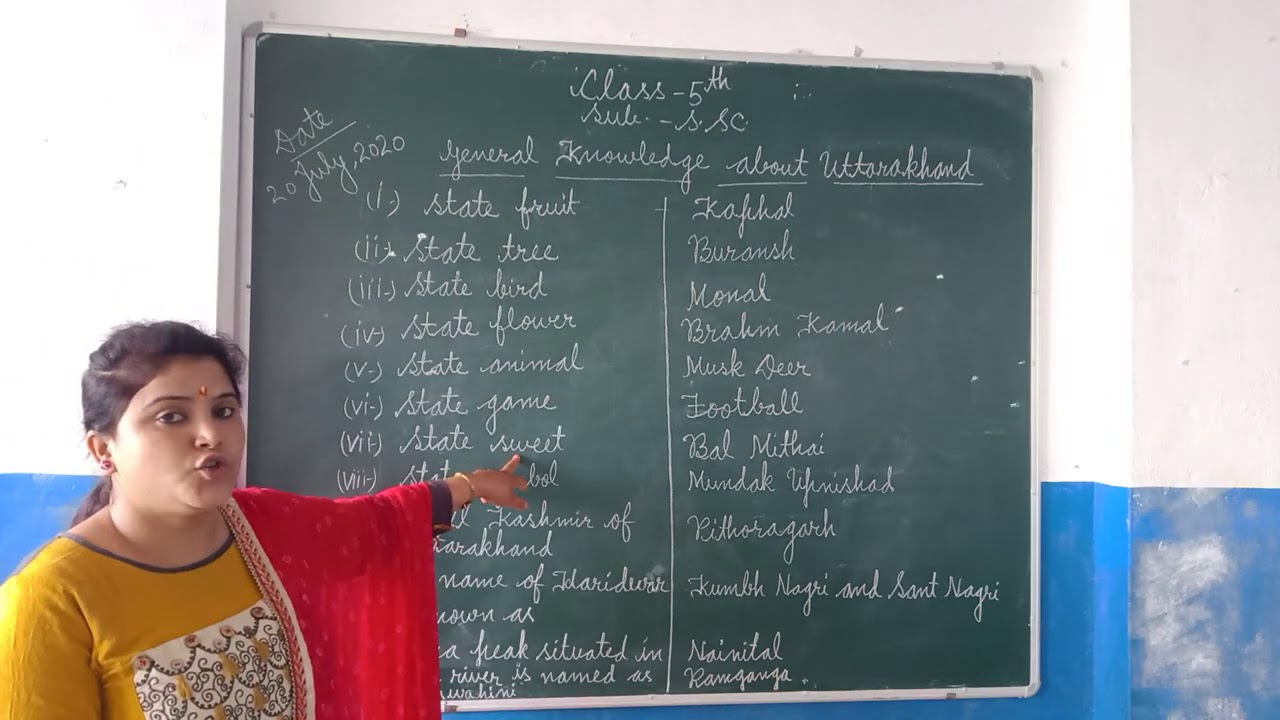 Class-5th
Sub. - S.SC.
Date
20 July, 2020
General Knowledge about Uttarakhand
(i-) State fruit Kaphal
(ii-) State tree Buransh
(iii-) State bird Monal
(iv-) State flower Brahm Kamal
(v-) State animal Musk Deer
(vi-) State game Football
(vii-) State sweet Bal Mithai
(viii-) State bol Mundak Upnishad
Kashmir of Pithoragarh
arakhand
name of Haridwar Kumbh Nagri and Sant Nagri
nown as
a peak situated in Nainital
river is named as Ramganga.
wahini